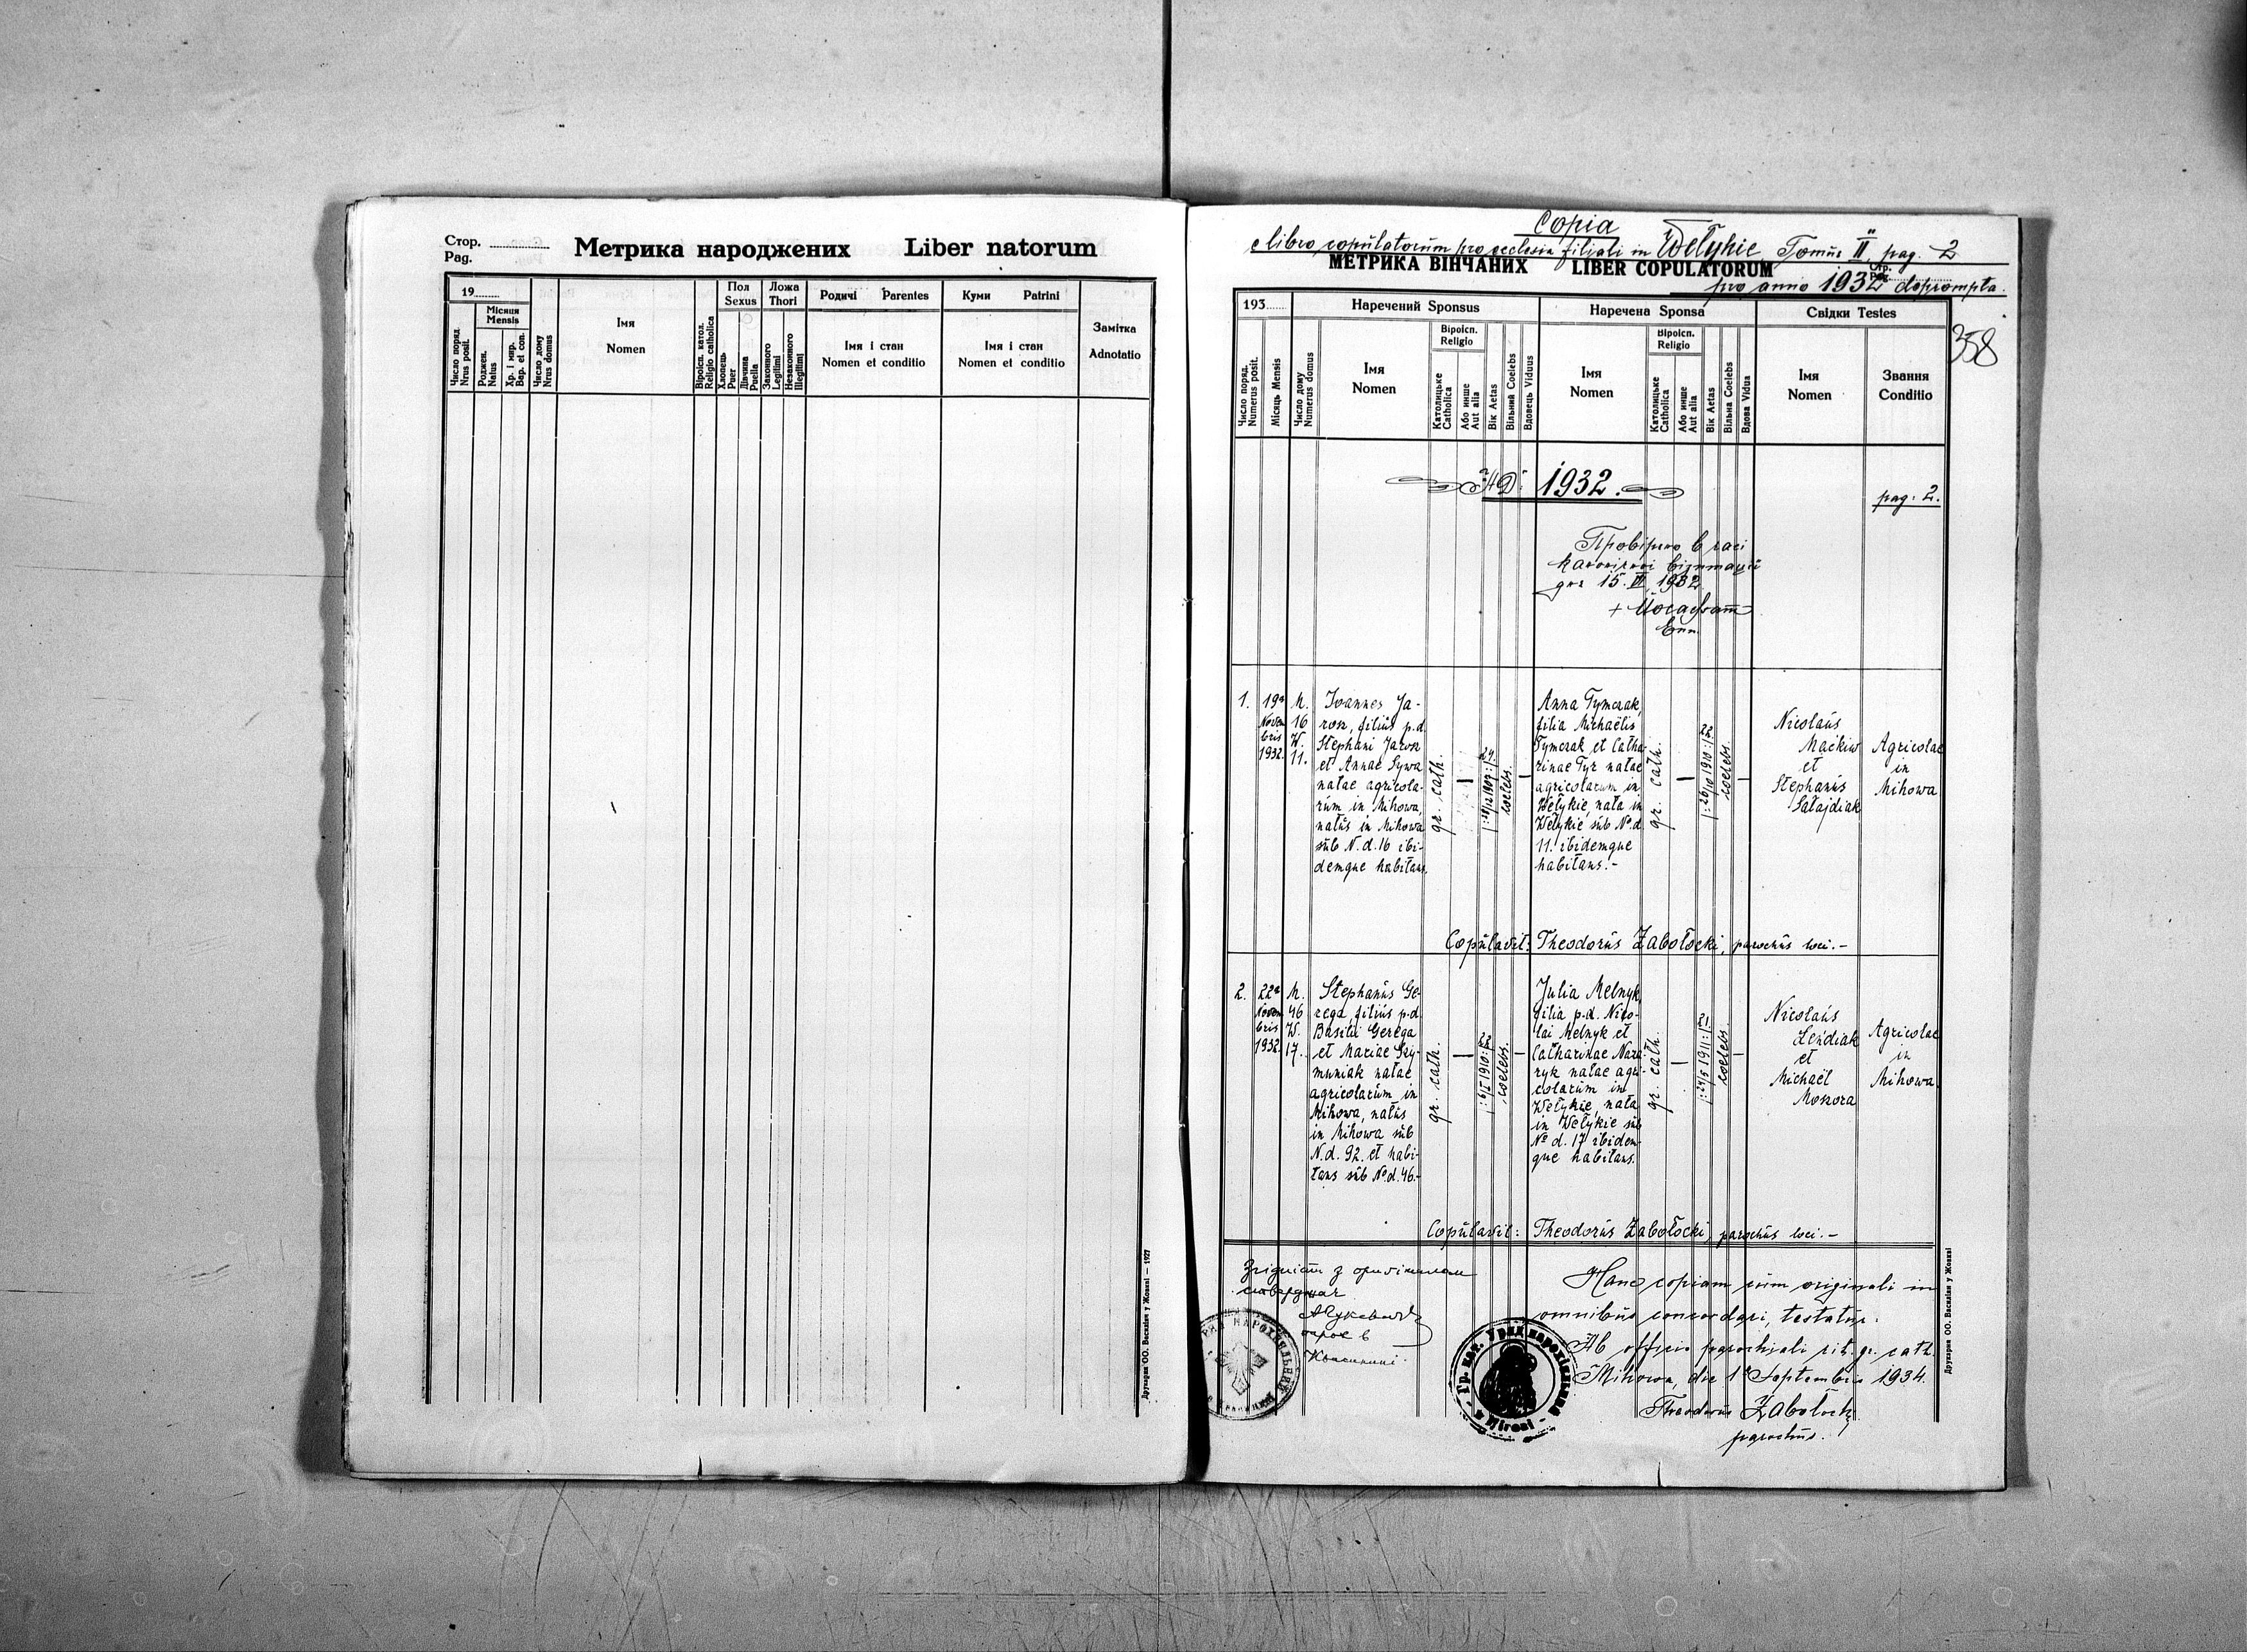 Стор.
Pag.
Метрика народжених Liber natorum
19
Число поряд.
Nrus posit.
Місяця
Mensis
Роджен.
Natus
Хр. і мир.
Bap. et con.
Число дому
Nrus domus
Імя
Nomen
Віроісп. катол.
Religio catholica
Пол
Sexus
Хлопець
Puer
Дівчина
Puella
Ложа
Thori
Законного
Legitimi
Незаконного
Illegitimi
Родичі Parentes
Імя і стан
Nomen et conditio
Куми Patrini
Імя і стан
Nomen et conditio
Замітка
Adnotatio
Друкарня ОО. Василіян у Жовкві — 1927
Copia
e libro copulatorum pro ecclesia filiali in Wełykie Tomus II. pag. 2
МЕТРИКА ВІНЧАНИХ LIBER COPULATORUM
pro anno 1932 deprompta.
358
193
Число поряд.
Numerus posit.
Місяць Mensis
Число дому
Numerus domus
Наречений Sponsus
Імя
Nomen
Віроісп.
Religio
Католицьке
Catholica
Або инше
Aut alia
Вік Aetas
Вільний Coelebs
Вдовець Viduus
Наречена Sponsa
Імя
Nomen
Віроісп.
Religio
Католицьке
Catholica
Або инше
Aut alia
Вік Aetas
Вільна Coelebs
Вдова Vidua
Свідки Testes
Імя
Nomen
Звання
Conditio
1932.
pag. 2.
Провірено в часі
канонічної візитації
дня 15. 1932
+ Йосафат
Епп.
1.
19a
Novem
bris
1932.
M.
16
W.
11.
Joannes Ja-
rosz, filius p.d.
Stephani Jarosz
et Annae Sywa
natae agricola-
rum in Mihowa,
natus in Mihowa
sub N.d. 16 ibi-
demque habitans.
gr. cath.
—
24
coelebs.
—
Anna Tymczak,
filia Michaëlis
Tymczak et Catha-
rinae Tyz natae
agricolarum in
Wełykie, nata in
Wełykie sub No.d.
11. ibidemque
habitans.-
gr. cath.
—
1910
22
coelebs.
—
Nicolaus
Maćkiw
et
Stephanus
Sałajdiak
Agricolae
in
Mihowa
Copulavit: Theodorus Zabołocki, parochus loci.-
2.
22a
Novem
bris
1932.
M.
46
W.
17.
Stephanus Ge-
rega, filius p.d.
Basilii Gerega
et Mariae Szy-
muniak natae
agricolarum in
Mihowa, natus
in Mihowa sub
N.d. 92. et habi-
tans sub No.d. 46.-
gr. cath.
—
1910
22
coelebs.
—
Julia Melnyk,
filia p.d. Nico-
lai Melnyk et
Catharinae Naza-
ryk natae agri-
colarum in
Wełykie, nata
in Wełykie sub
No d. 17 ibidem-
que habitans.
gr. cath.
—
1911
21
coelebs.
—
Nicolaus
Leńdiak
et
Michaël
Moskora
Agricolae
in
Mihowa.
Copulavit: Theodorus Zabołocki, parochus loci.-
Згідність з оригіналом
стверджає
Hanc copiam cum originali in
omnibus concordari, testatur.
Ab officio parochiali rit. gr. cath.
Mihowa, die 1a Septembris 1934.
Theodorus Zabołocki
parochus.
Гр. кат. Уряд парохіяльний
Друкарня ОО. Василіян у Жовкві